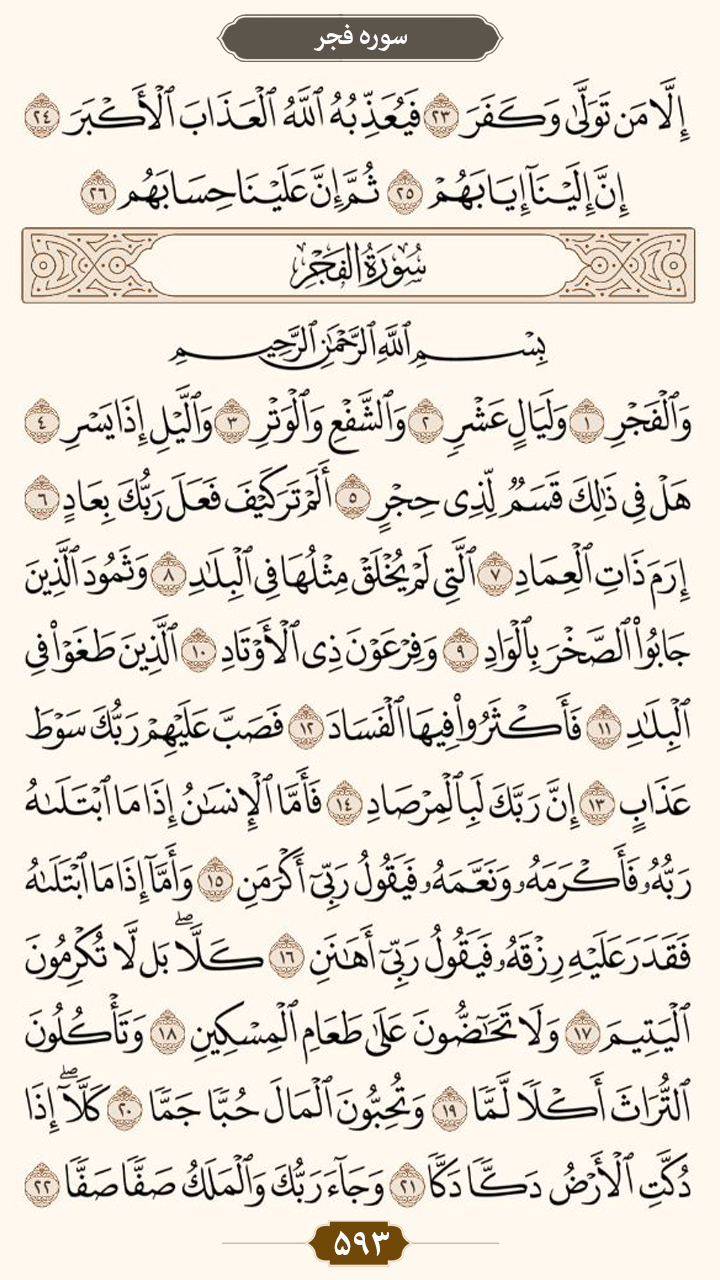 سوره فجر
إِلَّا مَن تَوَلَّىٰ وَكَفَرَ ٢٣ فَيُعَذِّبُهُ ٱللَّهُ ٱلْعَذَابَ ٱلْأَكْبَرَ ٢٤
إِنَّ إِلَيْنَآ إِيَابَهُمْ ٢٥ ثُمَّ إِنَّ عَلَيْنَا حِسَابَهُم ٢٦
سُورَةُ الفَجْرِ
بِسْمِ ٱللَّهِ ٱلرَّحْمَٰنِ ٱلرَّحِيمِ
وَٱلْفَجْرِ ١ وَلَيَالٍ عَشْرٍ ٢ وَٱلشَّفْعِ وَٱلْوَتْرِ ٣ وَٱلَّيْلِ إِذَا يَسْرِ ٤
هَلْ فِى ذَٰلِكَ قَسَمٌ لِّذِى حِجْرٍ ٥ أَلَمْ تَرَ كَيْفَ فَعَلَ رَبُّكَ بِعَادٍ ٦
إِرَمَ ذَاتِ ٱلْعِمَادِ ٧ ٱلَّتِى لَمْ يُخْلَقْ مِثْلُهَا فِى ٱلْبِلَٰدِ ٨ وَثَمُودَ ٱلَّذِينَ
جَابُوا۟ ٱلصَّخْرَ بِٱلْوَادِ ٩ وَفِرْعَوْنَ ذِى ٱلْأَوْتَادِ ١٠ ٱلَّذِينَ طَغَوْا۟ فِى
ٱلْبِلَٰدِ ١١ فَأَكْثَرُوا۟ فِيهَا ٱلْفَسَادَ ١٢ فَصَبَّ عَلَيْهِمْ رَبُّكَ سَوْطَ
عَذَابٍ ١٣ إِنَّ رَبَّكَ لَبِٱلْمِرْصَادِ ١٤ فَأَمَّا ٱلْإِنسَٰنُ إِذَا مَا ٱبْتَلَىٰهُ
رَبُّهُۥ فَأَكْرَمَهُۥ وَنَعَّمَهُۥ فَيَقُولُ رَبِّىٓ أَكْرَمَنِ ١٥ وَأَمَّآ إِذَا مَا ٱبْتَلَىٰهُ
فَقَدَرَ عَلَيْهِ رِزْقَهُۥ فَيَقُولُ رَبِّىٓ أَهَٰنَنِ ١٦ كَلَّاۖ بَل لَّا تُكْرِمُونَ
ٱلْيَتِيمَ ١٧ وَلَا تَحَٰٓضُّونَ عَلَىٰ طَعَامِ ٱلْمِسْكِينِ ١٨ وَتَأْكُلُونَ
ٱلتُّرَاثَ أَكْلًا لَّمًّا ١٩ وَتُحِبُّونَ ٱلْمَالَ حُبًّا جَمًّا ٢٠ كَلَّآۖ إِذَا
دُكَّتِ ٱلْأَرْضُ دَكًّا دَكًّا ٢١ وَجَآءَ رَبُّكَ وَٱلْمَلَكُ صَفًّا صَفًّا ٢٢
۵۹۳